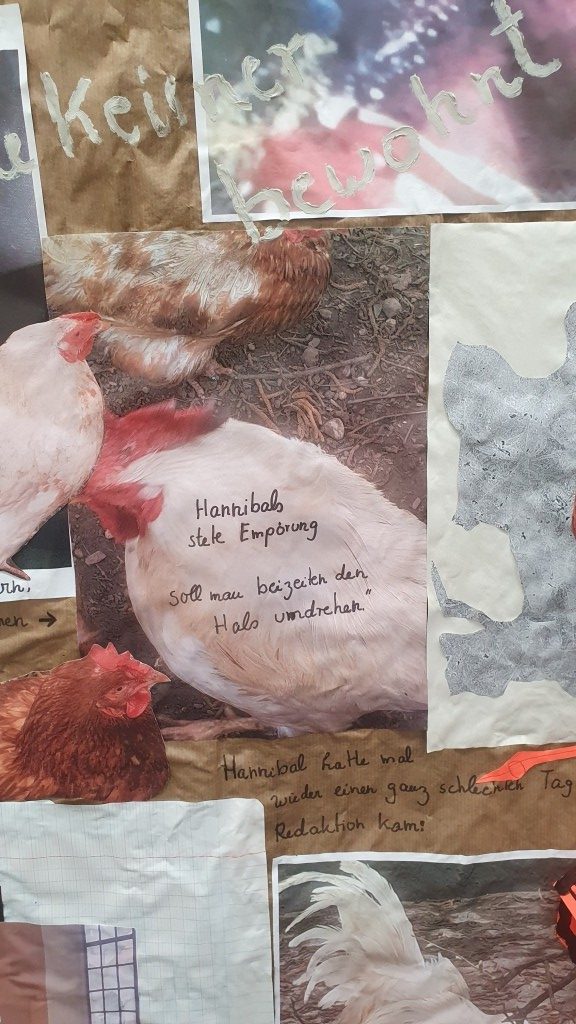 e Keiner
bewohnt
Hannibals
stete Empörung
soll man beizeiten den
Hals umdrehen."
rn,
en →
Hannibal hatte mal
wieder einen ganz schlechten Tag
Redaktion kam: